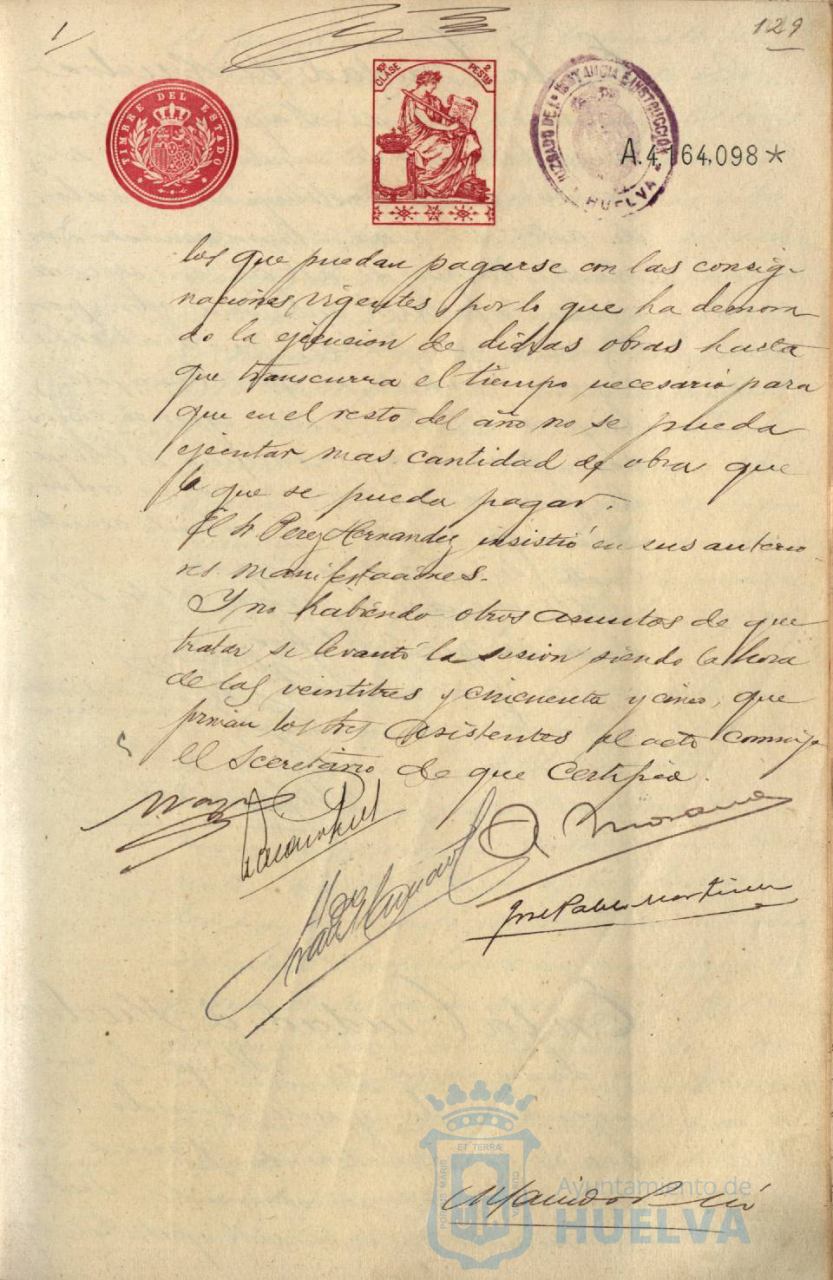 1
129
TIMBRE DEL ESTADO
10ª CLASE
2 PESTAS
JUZGADO DE 1ª INSTANCIA E INSTRUCCIÓN
HUELVA
A.4,164,098*
los que puedan pagarse con las consig-
naciones vigentes, por lo que ha demora-
do la ejecucion de dichas obras hasta
que transcurra el tiempo necesario para
que en el resto del año no se pueda
ejecutar mas cantidad de obra que
la que se pueda pagar.
El Sr Perez Hernandez insistió en sus anterio-
res manifestaciones.
Y no habiendo otros asuntos de que
tratar se levantó la sesion siendo la hora
de las veintitres y cincuenta y cinco, que
firman los Sres asistentes al acto conmigo
el Secretario de que certifico.
José Pablo Martinez
ET TERRÆ
PORTUS MARIS
CUSTODIA
Ayuntamiento de
HUELVA